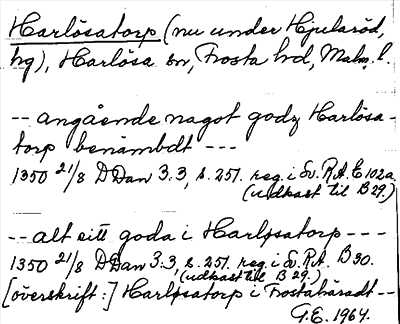 Harlösatorp (nu under Hjularöd,
hg), Harlösa sn, Frosta hd, Malm. l.
-- angående något godz Harlösa-
torp benämbdt ---
1350 21/8 DDan 3:3, s. 251. reg. i Sv. R.A. E 102a.
(udkast til B 29.)
-- alt sitt goda i Harløsatorp ---
1350 21/8 DDan 3:3, s. 251. reg. i Sv. R.A. B 30.
(udkast til B 29.)
[överskrift:] Harløsatorp i Frostahäradt --
G.E. 1964.